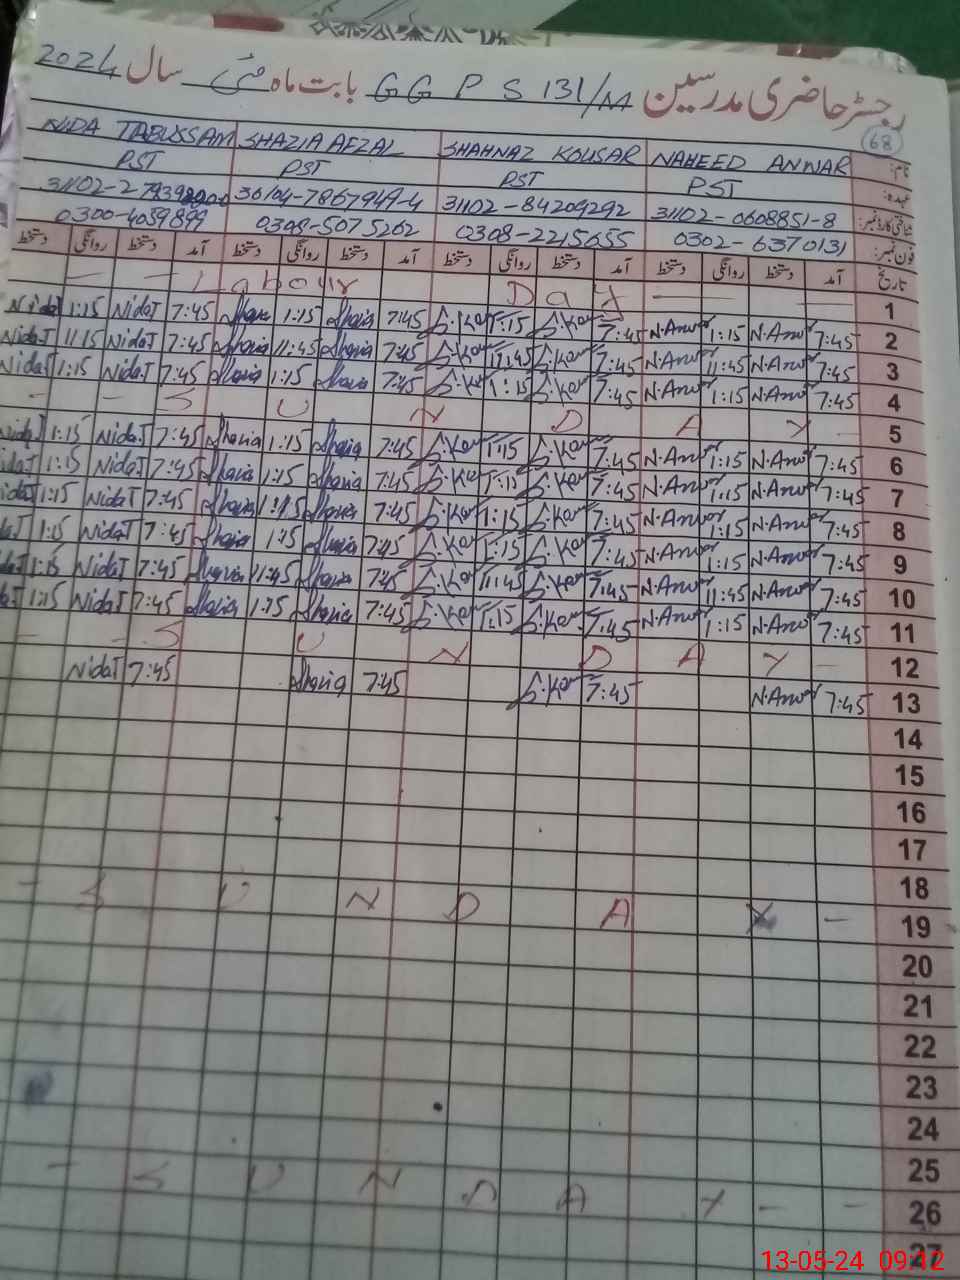 رجسٹر حاضری مدرسین GGPS 131/M بابت ماہ مئی سال 2024
68
نام: NAHEED ANWAR SHAHNAZ KOUSAR SHAZIA AFZAL NIDA TABUSSAM
عہدہ: PST PST PST PST
شناختی کارڈ نمبر: 31102-0608851-8 31102-84209292 36104-7867949-4
فون نمبر: 0302-6370131 0308-2215655 0308-5075262 0300-4059899
تاریخ آمد دستخط روانگی دستخط آمد دستخط روانگی دستخط آمد دستخط روانگی دستخط آمد دستخط روانگی دستخط
1 Labour Day
2 7:45 N.Anwar 1:15 N.Anwar 7:45 S.Kar 1:15 S.Kar 7:45 Shazia 1:15 Shazia 7:45 NidaT 1:15 NidaT
3 7:45 N.Anwar 11:45 N.Anwar 7:45 S.Kar 11:45 S.Kar 7:45 Shazia 11:45 Shazia 7:45 NidaT 11:15 NidaT
4 7:45 N.Anwar 1:15 N.Anwar 7:45 S.Kar 1:15 S.Kar 7:45 Shazia 1:15 Shazia 7:45 NidaT 1:15 NidaT
5 SUNDAY
6 7:45 N.Anwar 1:15 N.Anwar 7:45 S.Kar 1:15 S.Kar 7:45 Shazia 1:15 Shazia 7:45 NidaT 1:15 NidaT
7 7:45 N.Anwar 1:15 N.Anwar 7:45 S.Kar 1:15 S.Kar 7:45 Shazia 1:15 Shazia 7:45 NidaT 1:15 NidaT
8 7:45 N.Anwar 1:15 N.Anwar 7:45 S.Kar 1:15 S.Kar 7:45 Shazia 1:15 Shazia 7:45 NidaT 1:15 NidaT
9 7:45 N.Anwar 1:15 N.Anwar 7:45 S.Kar 1:15 S.Kar 7:45 Shazia 1:15 Shazia 7:45 NidaT 1:15
10 7:45 N.Anwar 11:45 N.Anwar 7:45 S.Kar 11:45 S.Kar 7:45 Shazia 11:45 Shazia 7:45 NidaT
11 7:45 N.Anwar 1:15 N.Anwar 7:45 S.Kar 1:15 S.Kar 7:45 Shazia 1:15 Shazia 7:45 NidaT 1:15
12 SUNDAY
13 7:45 N.Anwar 7:45 S.Kar 7:45 Shazia 7:45 NidaT
14
15
16
17
18
19 SUNDAY
20
21
22
23
24
25
26 SUNDAY
27
13-05-24 09:12